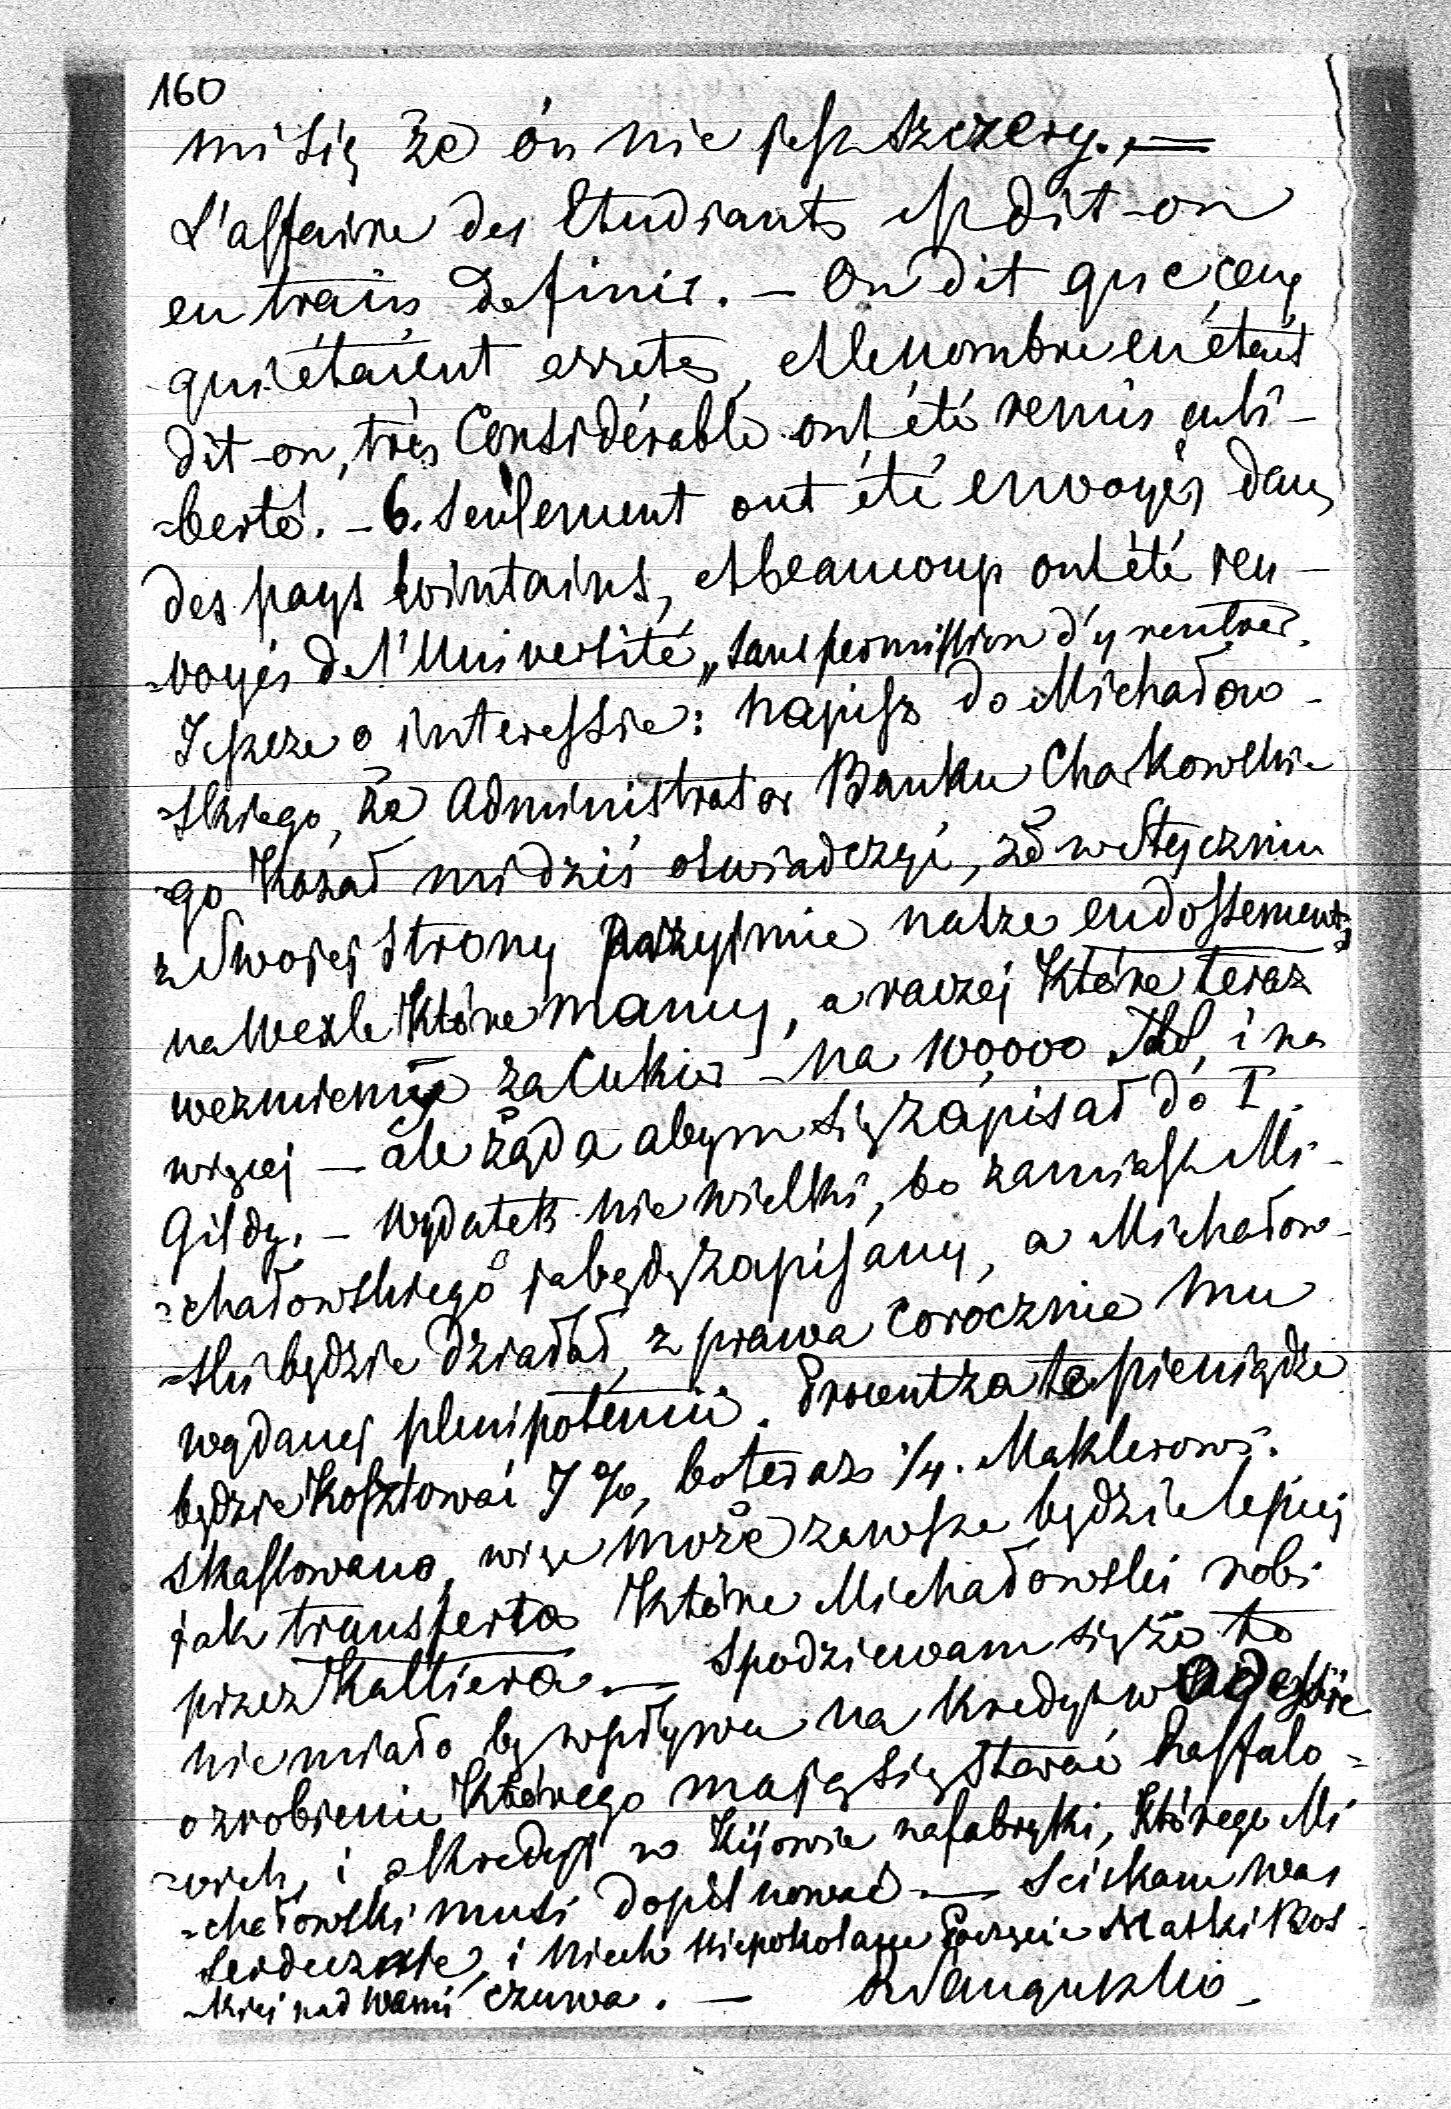 160
mi się że ón nie jest szczery. —
L'affaire des Etudiants est dit-on
en train de finir. — On dit que ceux
qui étaient arretés, et le nombre en étant
dit-on, très Considérable ont été remis en li-
-berté. — 6. seulement ont été envoyés dans
des pays lointains, et beaucoup ont été ren-
-voyés de l'Université, sans permission d'y rentrer.
Jeszcze o interessie: napisz do Michałow-
-skiego, że Administrator Banku Charkowskie
-go Kazał mi dziś oswiadczyć, żé w Styczniu
z Swojej strony przyjmie nasze endossementy
na Wexle Które mamy, a raczej Które teraz
wezmiemy za Cukier — na 100,000 Rbl, i na
więcej — ale żąda abym się zapisał do I
Gildy. — Wydatek nie wielki, bo zamiast Mi-
-chałowskiego ja będę zapisany, a Michałow-
-ski będzie działał, z prawa corocznie mu
wydanej plenipotencii. Procent za te pieniądze
będzie Kosztować 7 %, bo teraz 1/4. Maklerows.
skassowano, więc może zawsze będzie lepiej
jak transferta Które Michałowski robi
przez Kaltiera. — Spodziewam się że to
nie miało by wpływu na Kredyt w Odessie
o zrobienie Którego mają się starać Raffalo-
-wich, i o Kredyt w Kijowie na fabryki, Którego Mi
-chałowski musi dopilnować — Sciskam was
serdecznie, i niech Niepokolane Poczęcie Matki Bos-
-kiej nad Wami czuwa. — RSanguszko